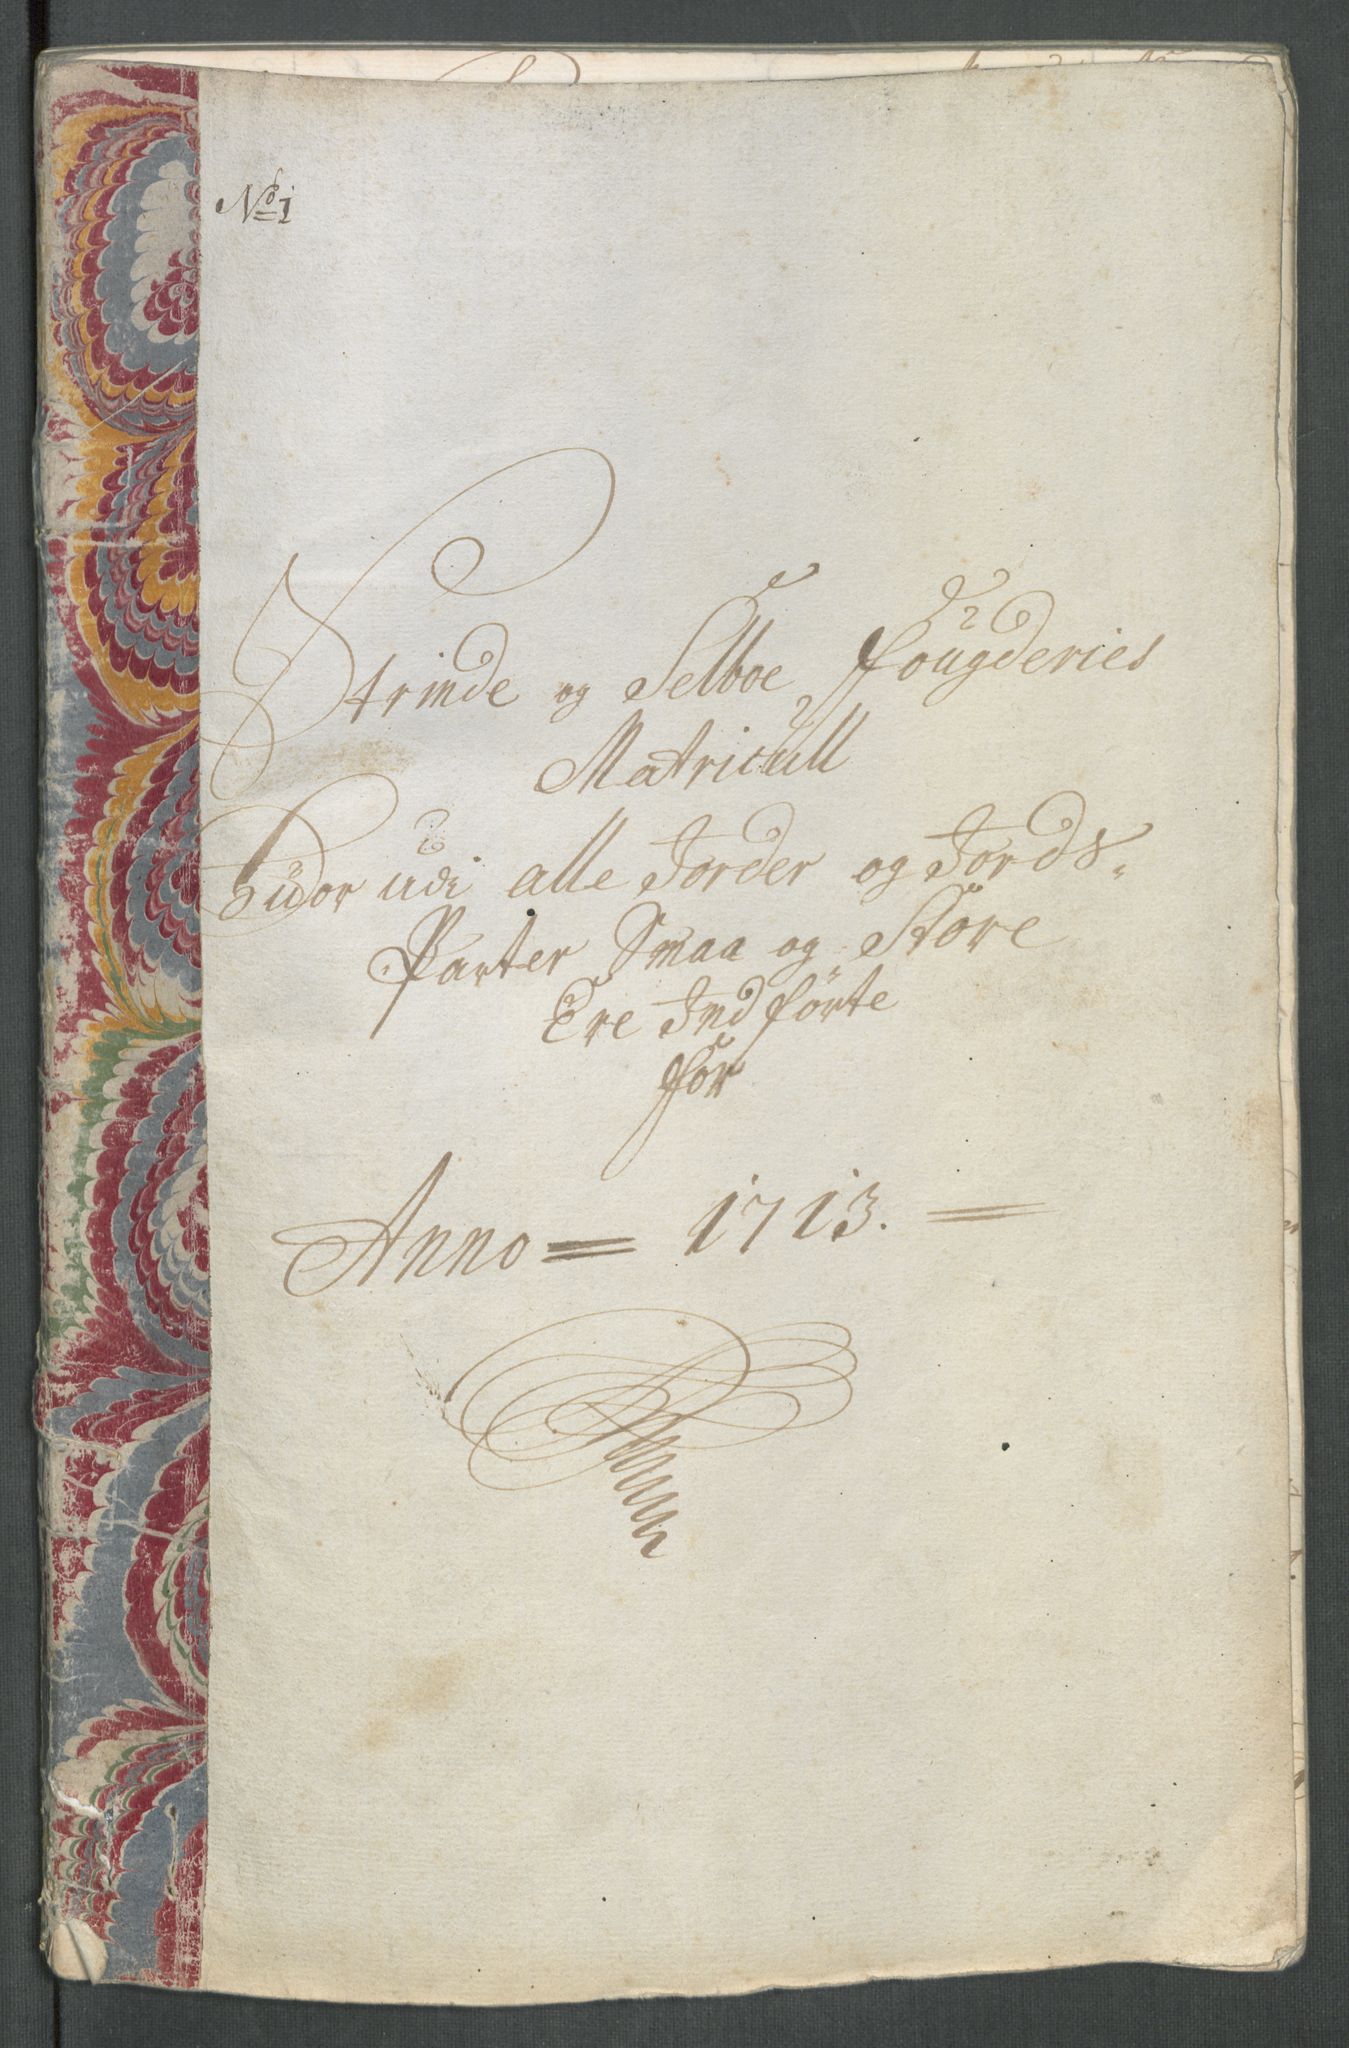 No 1
Strinde og Selboe fougderies
Matricull
Huor udi alle Jorder og Jords-
Parter Smaa og Store
Ere Indførte
for
Anno = 1713. =